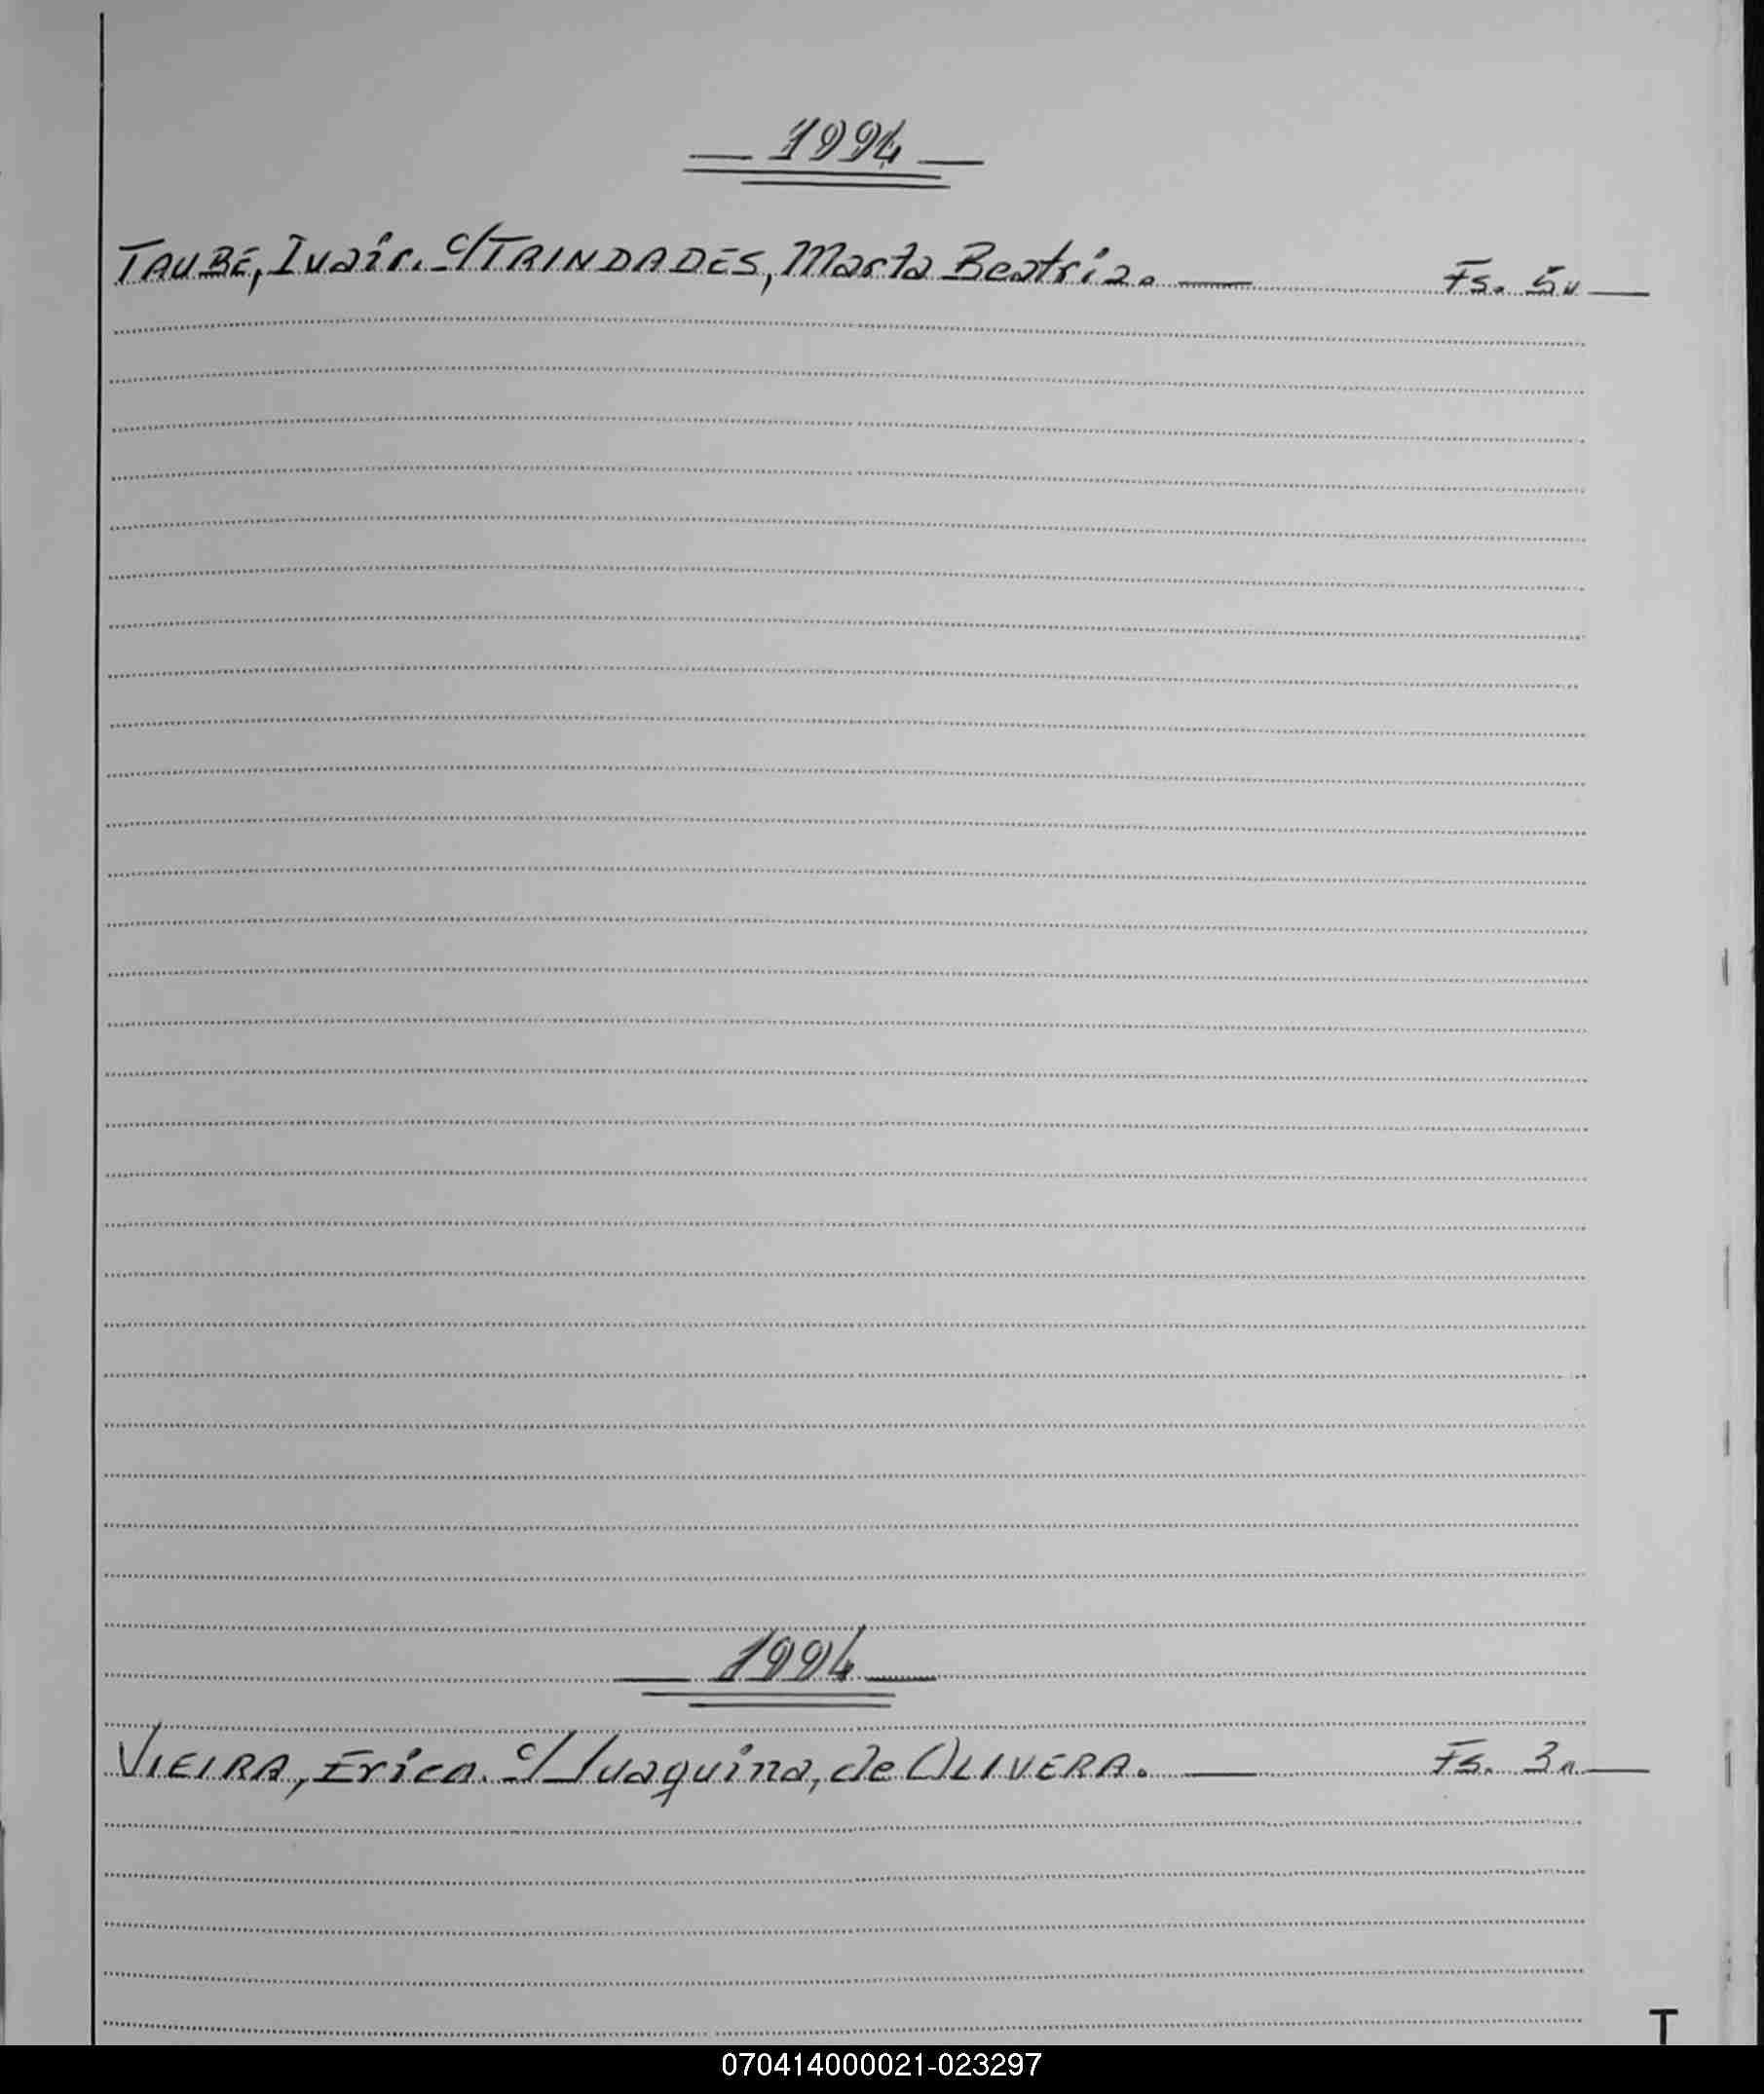 — 1994 —
TAUBE, Ivair. c/TRINDADES, Marta Beatriz. — Fs. 5v —
— 1994 —
VIEIRA, Erico. c/ Juaquina, de OLIVERA. — Fs. 3n —
T
070414000021-023297